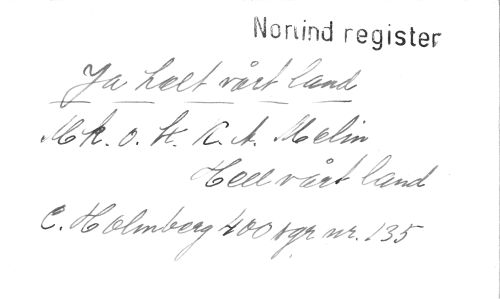 Norlind register
Ja helt vårt land
Mk. o. st. K. A. Melin
Hell vårt land
C. Holmberg 400 sgr nr. 135